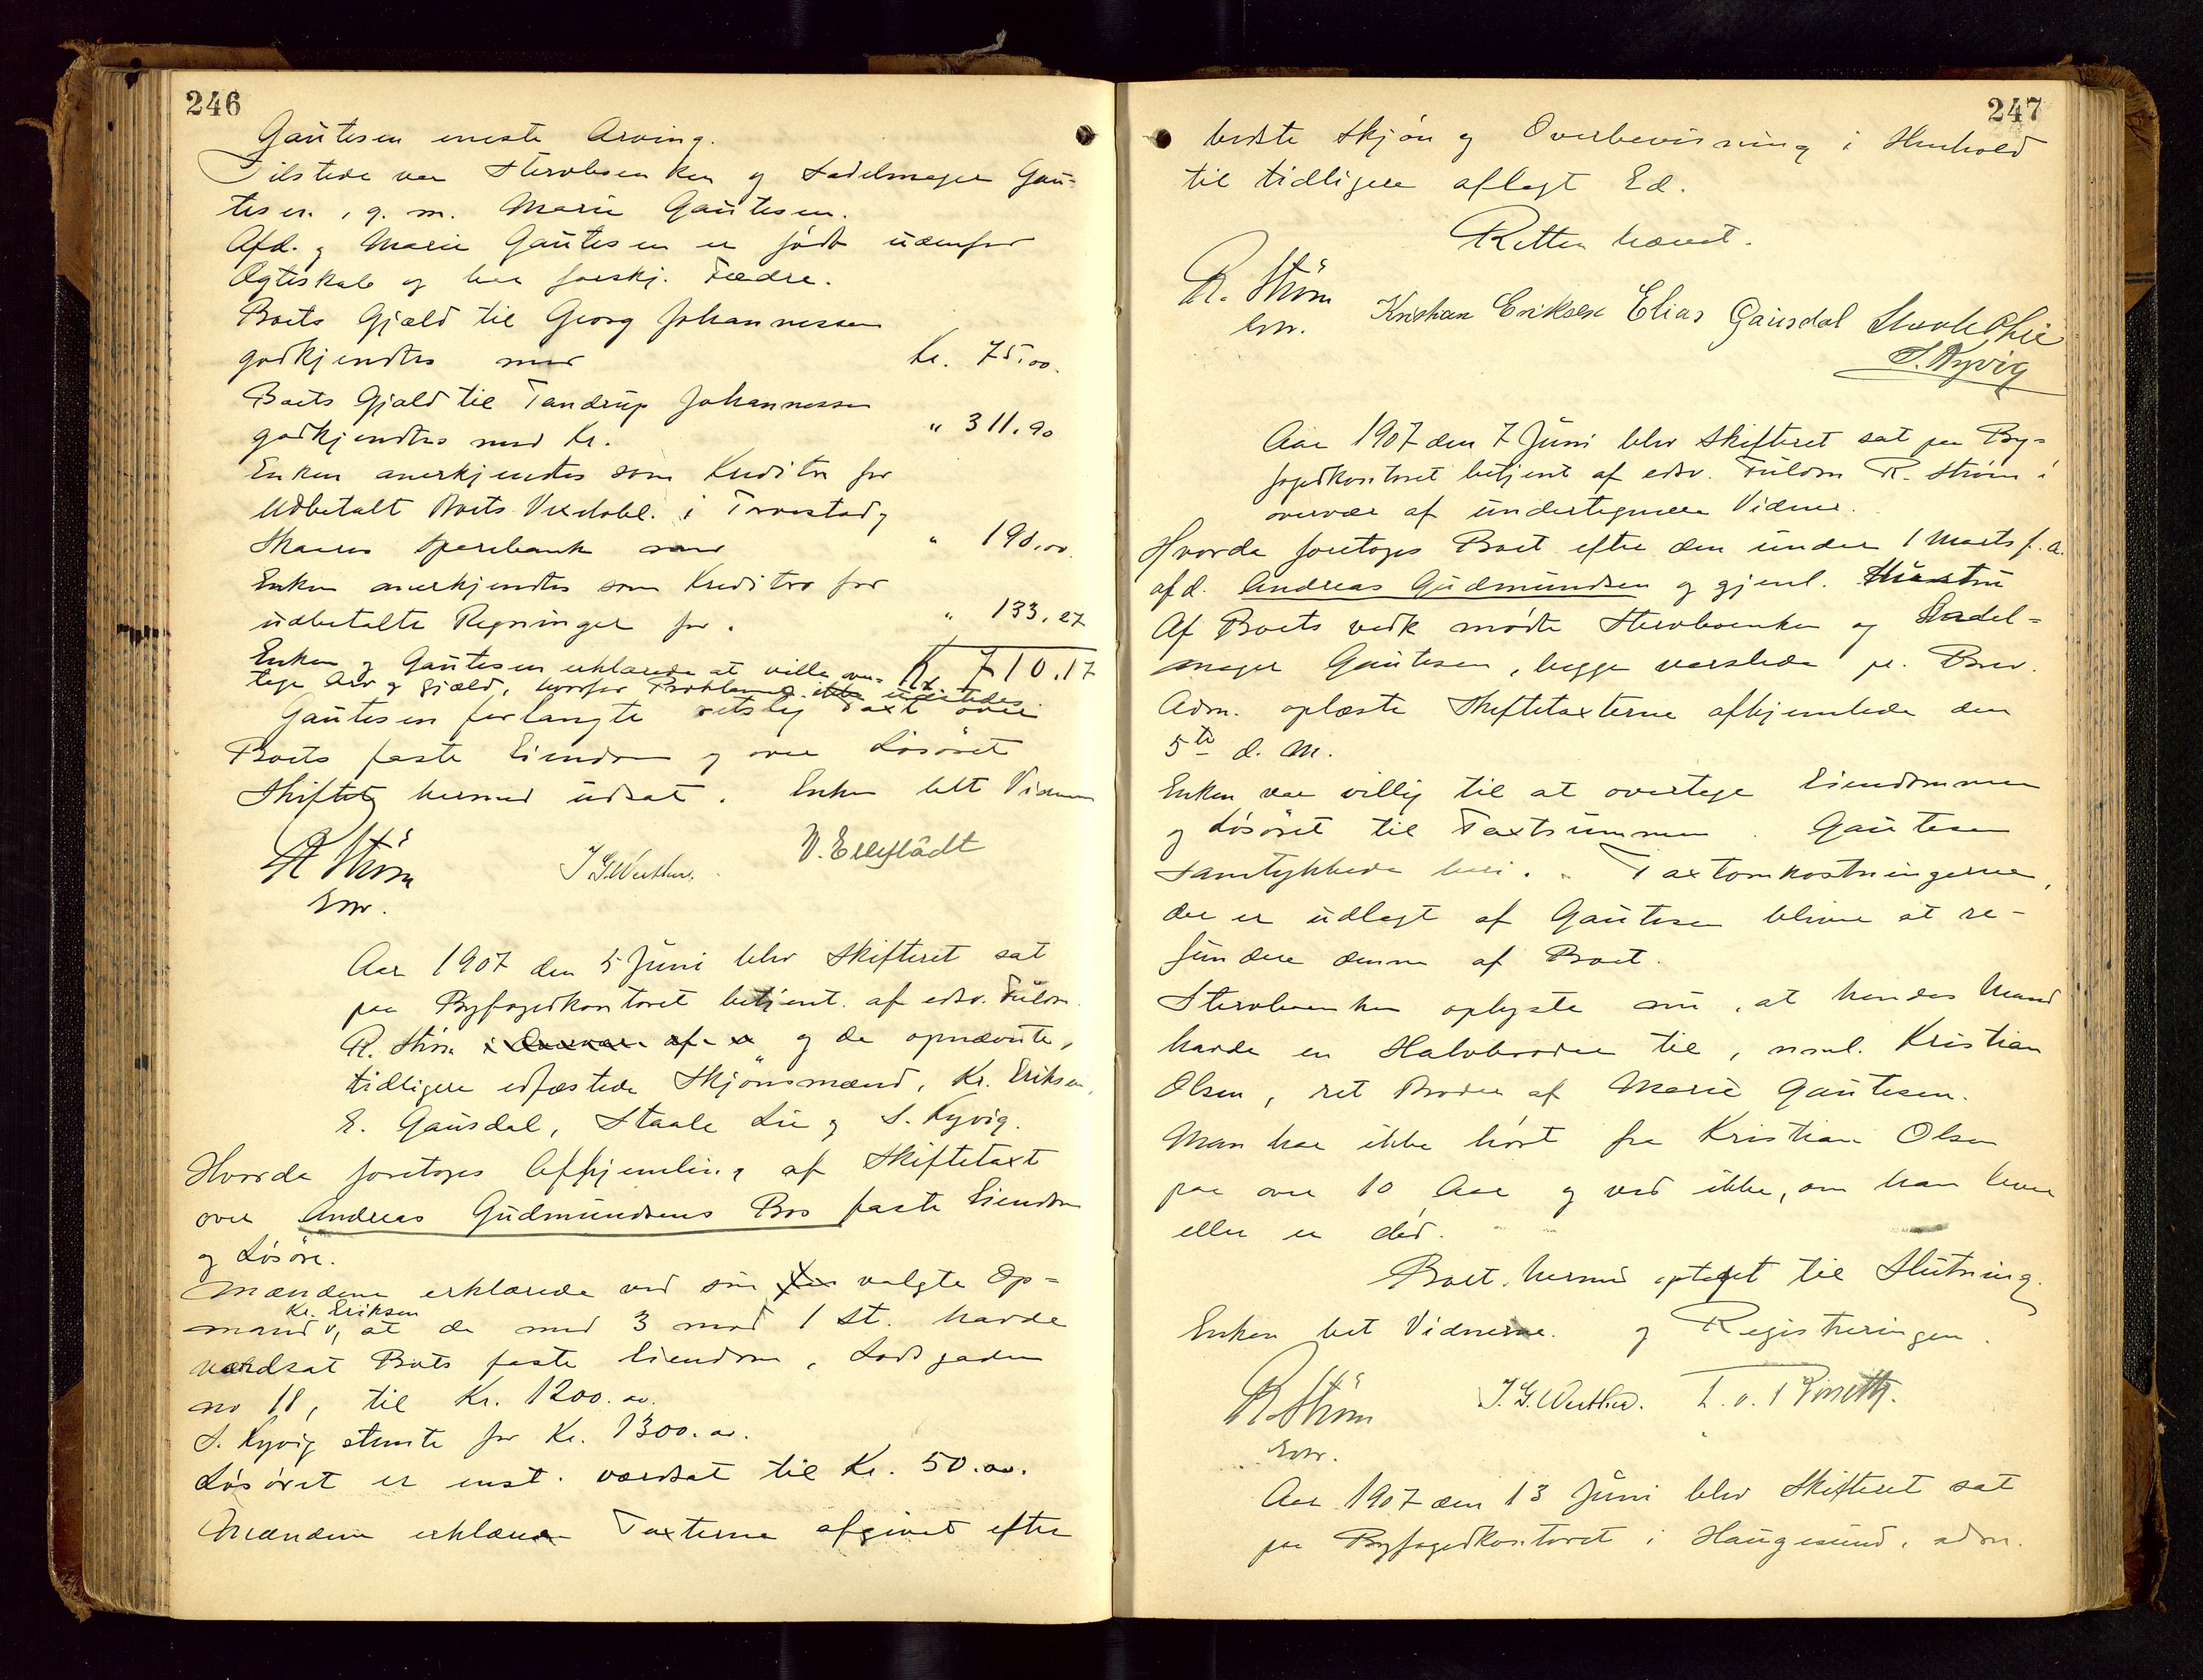 246
Gautesen eneste Arving.
Tilstede var Stervboenken og Sadelmager Gau-
tesen, g. m. Marie Gautesen.
Afd. og Marie Gautesen er födt udenfor
Ægteskab og har forskj. Fædre.
Boets Gjæld til Georg Johannessen
godkjendtes med Kr. 75.00.
Boets Gjæld til Tandrup Johannessen
godkjendtes med Kr. " 311.90
Enken anerkjendtes som Kreditor for
Udbetalt Boets Vexelobl. i Torvestad og
Skaare Sparebank med " 190.00.
Enken anerkjendtes som Kreditor for
udbetalte Regninger for. " 133.27
Enken og Gautesen erklærede at ville over- Kr. 710.17
tage Arv og Gjæld, hvorfor Proklama ikke udstedes
Gautesen forlangte retslig Taxt over
Boets faste Eiendom og over Lösöret
Skiftet hermed udsat. Enken bett Vidnerne
R Ström
Edsv.
J. G. Wester.
Aar 1907 den 5 Juni blev Skifteret sat
paa Byfogedkontoret betjent af edsv. Fuldm.
R. Ström i Overvær af og de opnævnte,
tidligere edfæstede Skjönsmænd, Kr. Eriksen,
E. Gausdal, Staale Lie og S. Kyvig.
Hvorda foretoges Afhjemling af Skiftetaxt
over Andreas Gudmundsens Bos faste Eiendom
og Lösöre.
Mændene erklærede ved sin valgte Op-
Kr. Eriksen
mand, at de med 3 mod 1 St. havde
værdsat Boets faste Eiendom, Lodsgaden
no 18, til Kr. 1200.00.
S. Kyvig stemte for Kr. 1300.00.
Lösöret er enst. værdsat til Kr. 50.00.
Mændene erklærede Taxterne afgivet efter
247
bedste Skjön og Overbevisning i Henhold
til tidligere aflagt Ed.
Retten hævet.
R. Ström
Edsv.
Kristian Eriksen Elias Gausdal Staale Lie
S. Kyvig
Aar 1907 den 7 Juni blev Skifteret sat paa By-
fogedkontoret betjent af edsv. Fuldm R. Ström i
overvær af undertegnede Vidner.
Hvorda foretoges Boet efter den under 1 Marts f. a.
afd. Andreas Gudmundsen og gjenl. Hustru
Af Boets vedk mödte Stervboenken og Sadel-
mager Gautesen, begge varslede pr. Brev.
Adm. oplæste Skiftetaxterne afhjemlede den
5te d. M.
Enken var villig til at overtage Eiendommen
og Lösöret til Taxtsummen. Gautesen
samtykkede heri. Taxtomkostningerne,
der er udlagt af Gautesen bliver at re-
fundere denne af Boet.
Stervboenken oplyste nu, at hendes Mand
havde en Halvbroder til, nml. Kristian
Olsen, ret Broder af Marie Gautesen.
Man har ikke hört fra Kristian Olsen
paa over 10 Aar og ved ikke, om han lever
eller er död.
Boet hermed optaget til Slutning.
Enken bet Vidnerne. og Registreringen.
R. Ström
Edsv.
J. G. Wester.
Aar 1907 den 13 Juni blev Skifteret sat
paa Byfogedkontoret i Haugesund, adm.